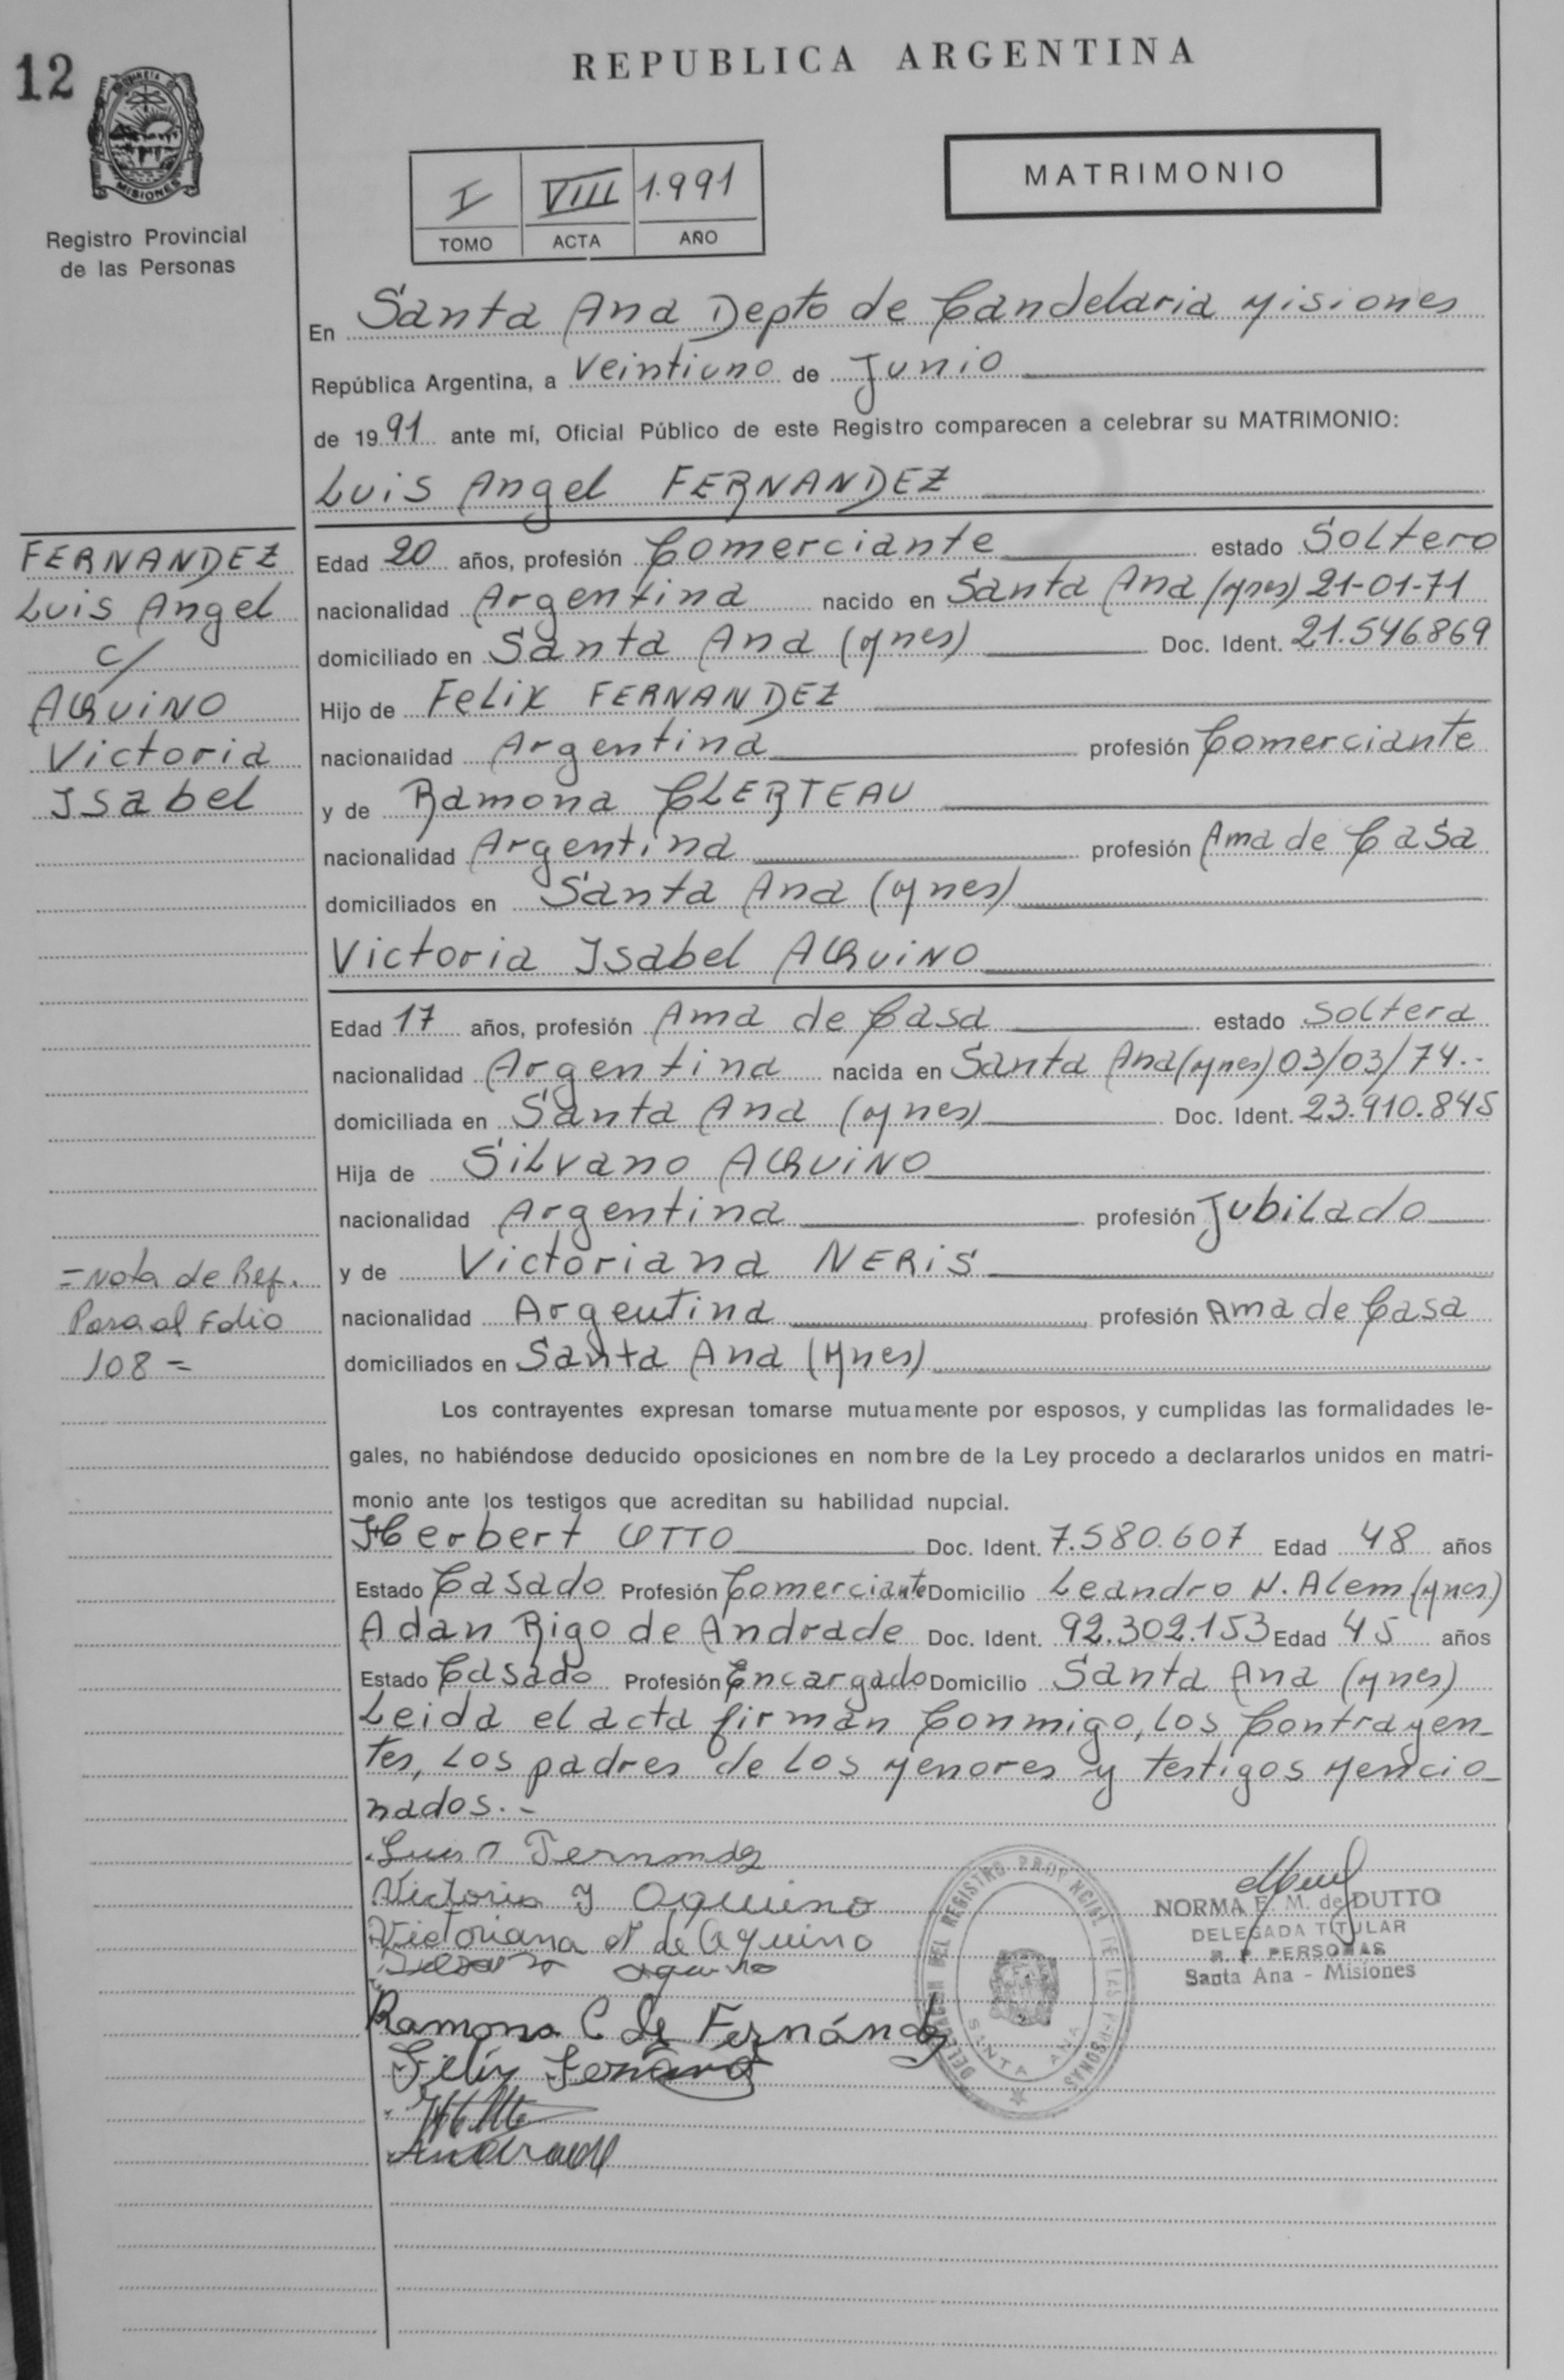 12
REPUBLICA ARGENTINA
MISIONES
Registro Provincial
de las Personas
I VIII 1.991
TOMO ACTA AÑO
MATRIMONIO
En Santa Ana Depto de Candelaria Misiones
República Argentina, a Veintiuno de Junio
de 1991 ante mí, Oficial Público de este Registro comparecen a celebrar su MATRIMONIO:
Luis Angel FERNANDEZ
FERNANDEZ
Luis Angel
c/
AQUINO
Victoria
Isabel
Edad 20 años, profesión Comerciante estado Soltero
nacionalidad Argentina nacido en Santa Ana (Mnes) 21-01-71
domiciliado en Santa Ana (Mnes) Doc. Ident. 21.546.869
Hijo de Felix FERNANDEZ
nacionalidad Argentina profesión Comerciante
y de Ramona CLERTEAU
nacionalidad Argentina profesión Ama de Casa
domiciliados en Santa Ana (Mnes)
Victoria Isabel AQUINO
Edad 17 años, profesión Ama de Casa estado Soltera
nacionalidad Argentina nacida en Santa Ana (Mnes) 03/03/74.-
domiciliada en Santa Ana (Mnes) Doc. Ident. 23.910.845
Hija de Silvano AQUINO
nacionalidad Argentina profesión Jubilado
y de Victoriana NERIS
nacionalidad Argentina profesión Ama de Casa
domiciliados en Santa Ana (Mnes)
=Nota de Ref.
Pasa al Folio
108=
Los contrayentes expresan tomarse mutuamente por esposos, y cumplidas las formalidades le-
gales, no habiéndose deducido oposiciones en nombre de la Ley procedo a declararlos unidos en matri-
monio ante los testigos que acreditan su habilidad nupcial.
Herbert OTTO Doc. Ident. 7.580.607 Edad 48 años
Estado Casado Profesión Comerciante Domicilio Leandro N. Alem (Mnes)
Adan Rigo de Andrade Doc. Ident. 92.302.153 Edad 45 años
Estado Casado Profesión Encargado Domicilio Santa Ana (Mnes)
Leida el acta firman Conmigo, los Contrayen-
tes, los padres de los Menores y testigos Mencio-
nados.-
Luis A Fernandez
Victoria I Aquino
Victoriana N de Aquino
Silvano Aquino
Ramona C de Fernández
Felix Fernandez
Andrade
DELEGACION DEL REGISTRO PROVINCIAL DE LAS PERSONAS
SANTA ANA
NORMA E. M. de DUTTO
DELEGADA TITULAR
R. P. PERSONAS
Santa Ana - Misiones